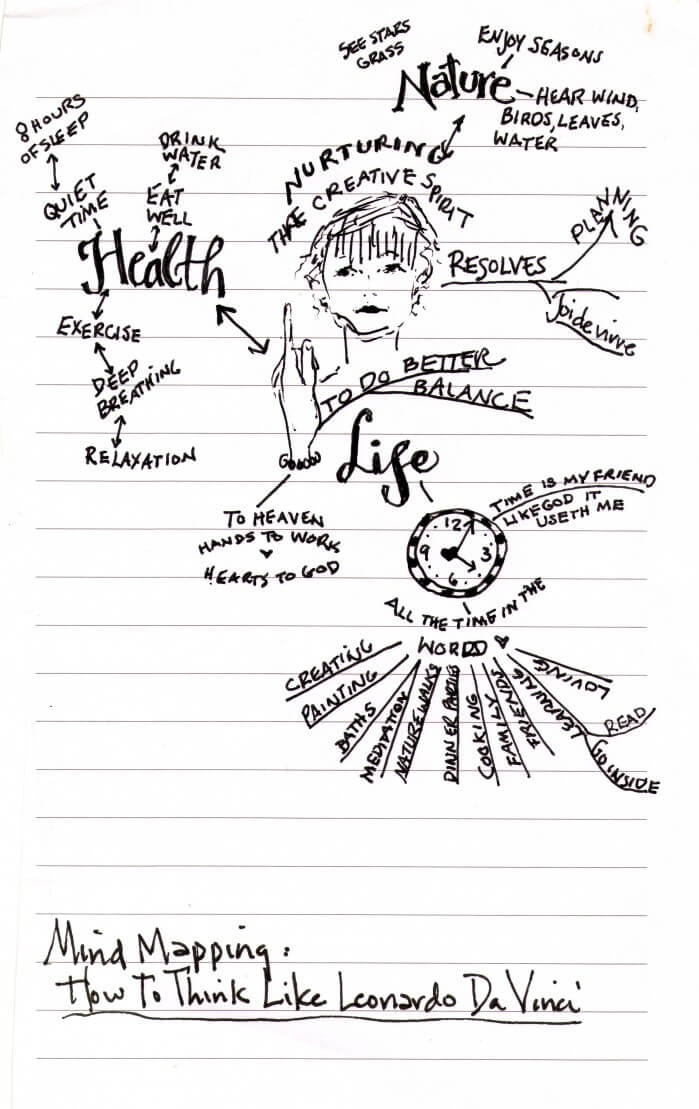 SEE STARS
GRASS
ENJOY SEASONS
Nature
HEAR WIND,
BIRDS, LEAVES,
WATER
8 HOURS
OF SLEEP
DRINK
WATER
QUIET
TIME
EAT
WELL
Health
NURTURING
THE CREATIVE SPIRIT
RESOLVES
PLANNING
Joi de vivre
EXERCISE
DEEP
BREATHING
RELAXATION
TO DO BETTER
BALANCE
Life
TO HEAVEN
HANDS TO WORK
HEARTS TO GOD
TIME IS MY FRIEND
LIKE GOD IT
USETH ME
12
9
3
6
ALL THE TIME IN THE
CREATING
PAINTING
BATHS
MEDITATION
NATURE WALKS
DINNER PARTIES
COOKING
FAMILY
FRIENDS
LEARNING
LOVING
READ
GO INSIDE
Mind Mapping:
How To Think Like Leonardo Da Vinci